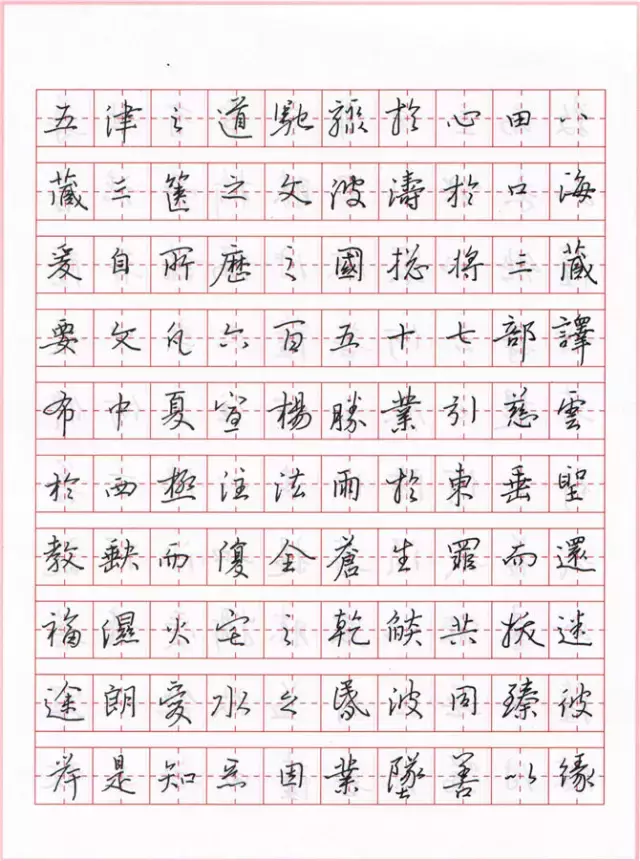 五津之道馳驟於心田八
藏三篋之文波濤於口海
爰自所歷之國揔將三藏
要文凡六百五十七部譯
布中夏宣楊勝業引慈雲
於西極注法雨於東垂聖
教缺而復全蒼生罪而還
福濕火宅之乾燄共拔迷
途朗愛水之昏波同臻彼
岸是知惡因業墜善以緣